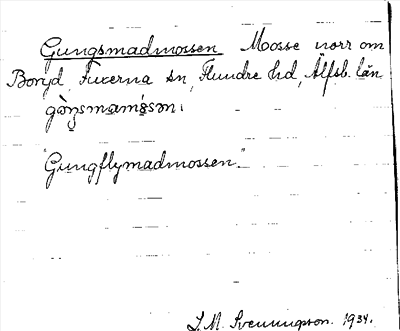 Gungsmadmossen Mosse norr om
Boryd, Fuxerna sn, Flundre hd, Älfsb. län
"Gungflymadmossen."
Svenungsson. 1934.